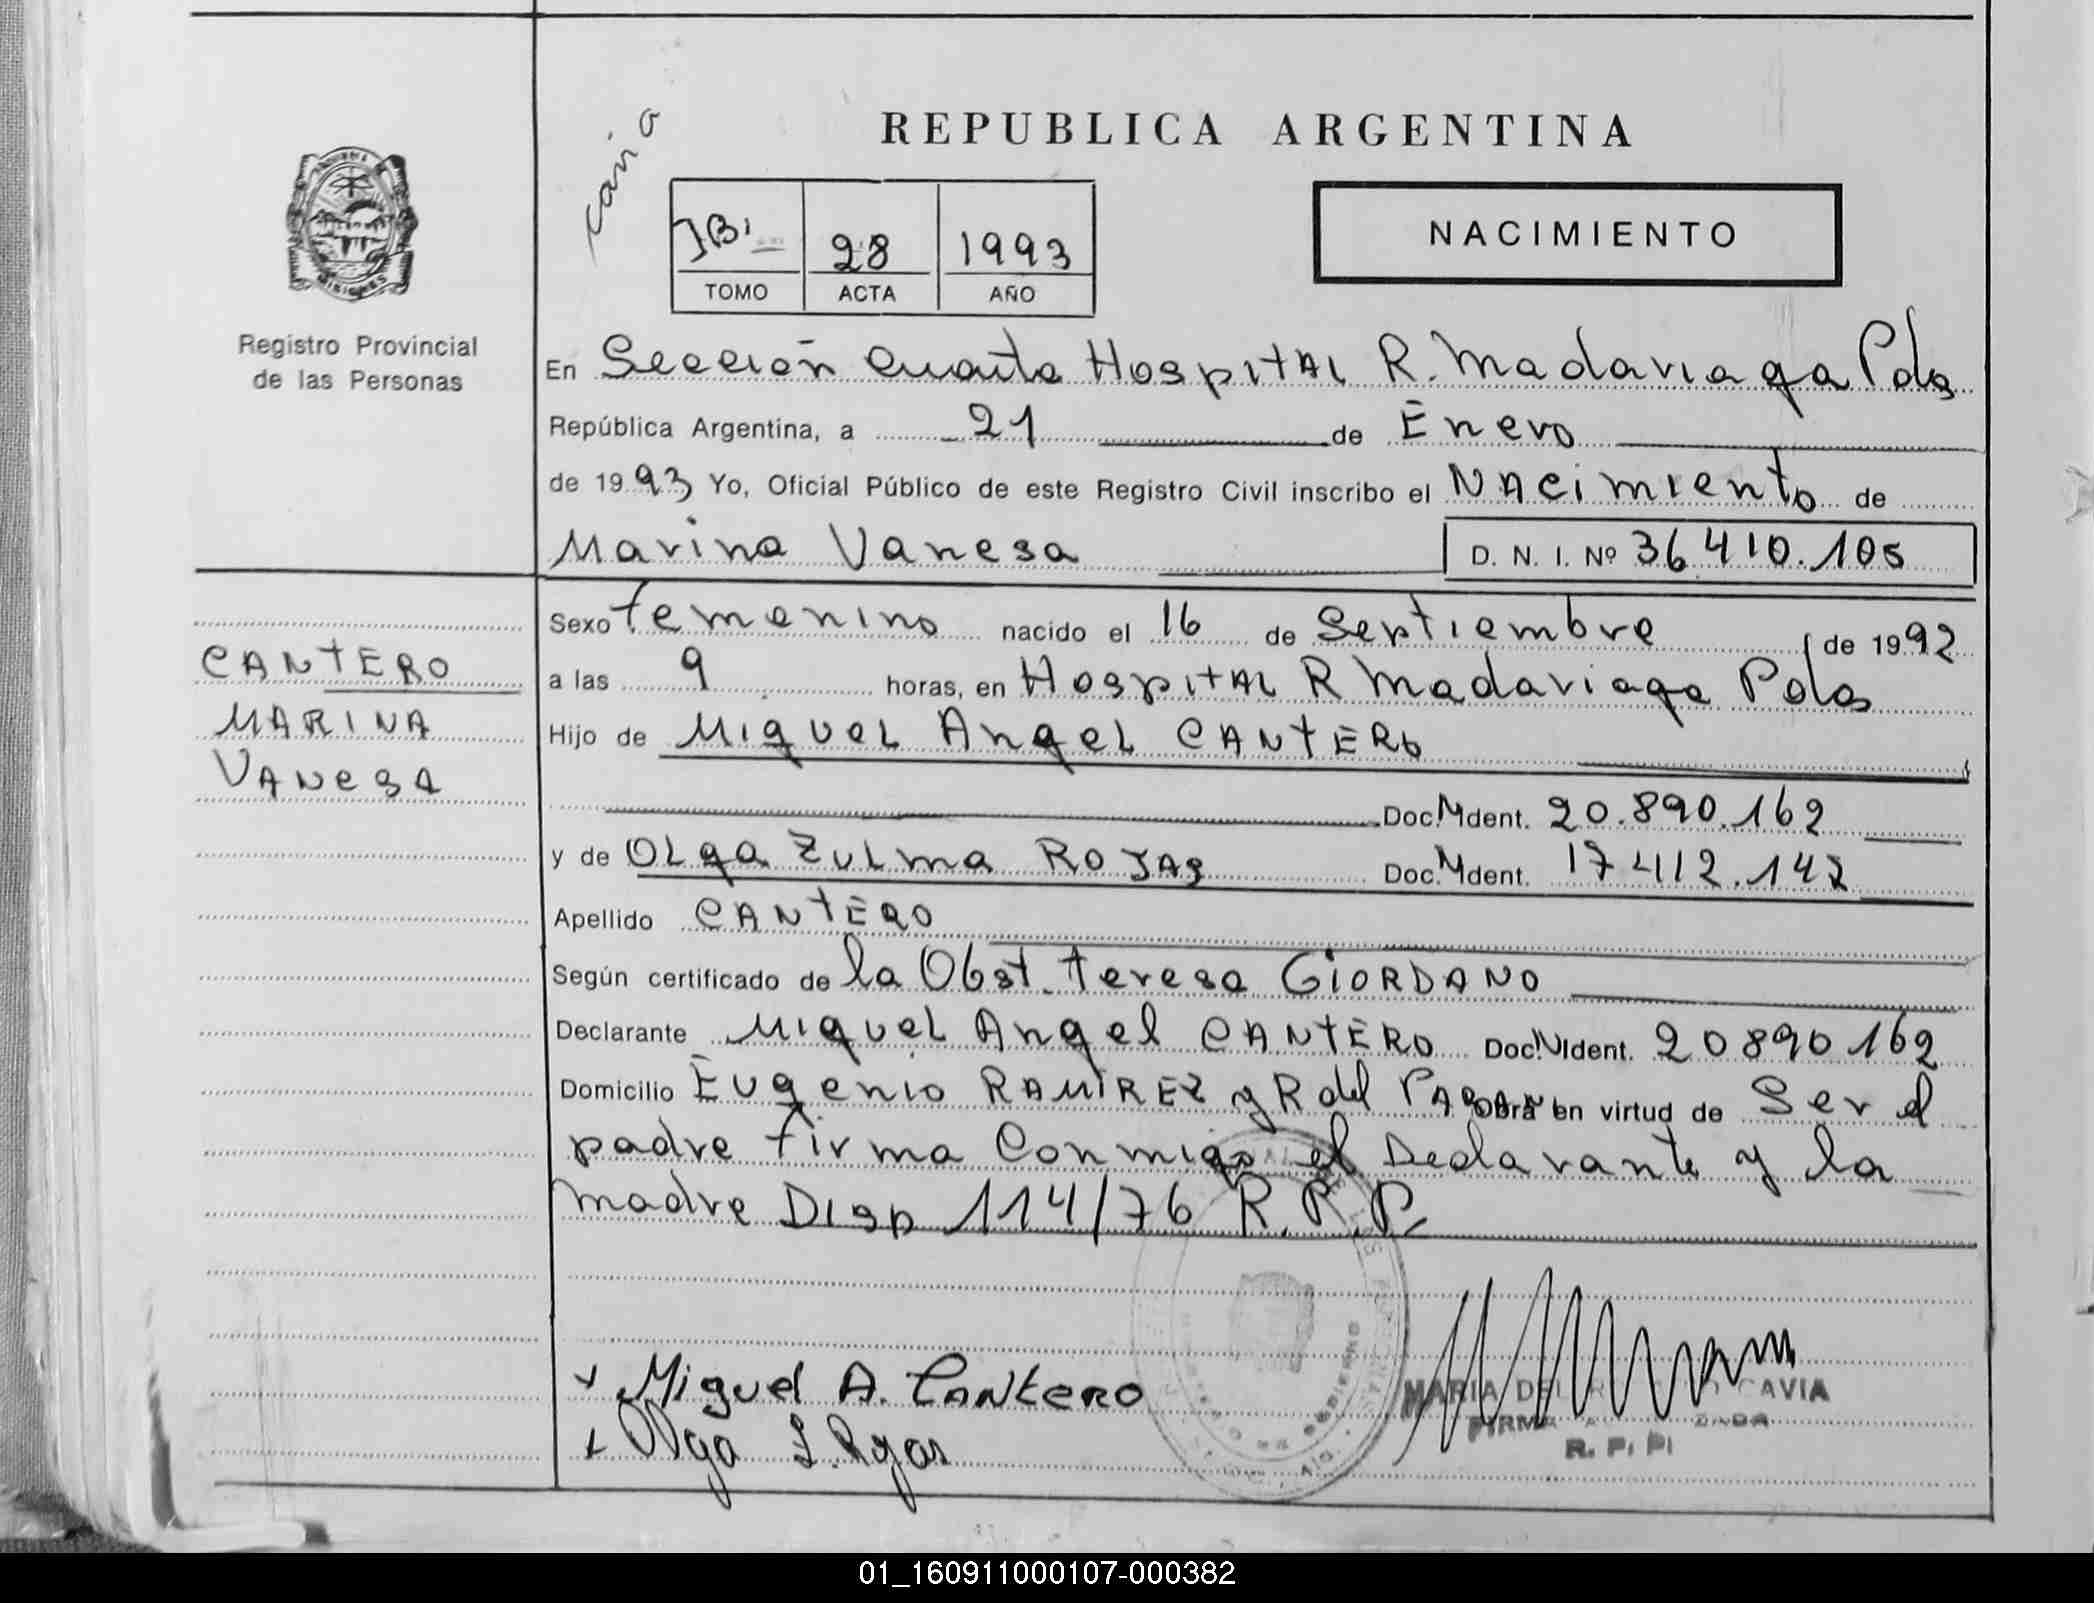 REPUBLICA ARGENTINA
NACIMIENTO
28 1993
TOMO ACTA AÑO
Registro Provincial
de las Personas
En Sección Cuarta Hospital R. Madariaga Pdas
República Argentina, a 21 de Enero
de 1993 Yo, Oficial Público de este Registro Civil inscribo el Nacimiento de
Marina Vanesa D. N. I. Nº 36 410.105
CANTERO
MARINA
VANESA
Sexo femenino nacido el 16 de Septiembre de 1992
a las 9 horas, en Hospital R Madariaga Pdas
Hijo de Miguel Angel CANTERO
Doc. Ident. 20.890.162
y de Olga Zulma ROJAS Doc. Ident. 17 412.147
Apellido CANTERO
Según certificado de la Obst. Teresa GIORDANO
Declarante Miguel Angel CANTERO Doc. Ident. 20 890 162
Domicilio Eugenio RAMIREZ y R del Obra en virtud de Ser el
padre firma Conmigo el Declarante y la
madre Disp 114/76 R.R.P.
Miguel A. Cantero
Olga Z. Rojas
MARIA DEL CAVIA
FIRMA
R. P. P.
01_160911000107-000382